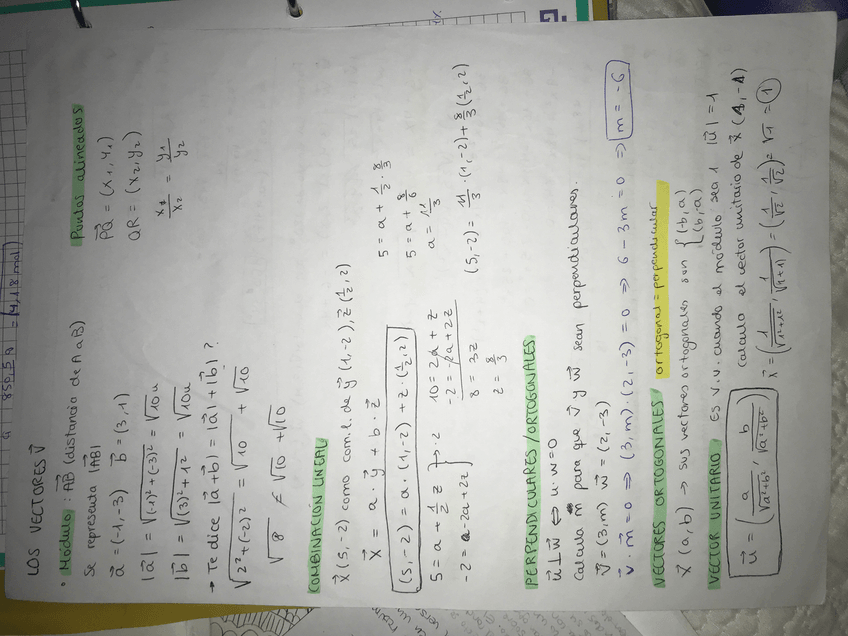 LOS VECTORES V⃗
• Módulo: AB⃗ (distancia de A a B)
Se representa |AB|
a⃗ = (-1,-3) b⃗ = (3,1)
|a⃗| = √(-1)²+(-3)² = √10u
|b⃗| = √(3)²+1² = √10u
→ Te dice |a⃗+b⃗| = |a⃗|+|b⃗| ?
√2²+(-2)² = √10 + √10
√8 ≠ √10 + √10
Puntos alineados
PQ⃗ = (x1, y1)
QR = (x2, y2)
x1/x2 = y1/y2
COMBINACIÓN LINEAL
x⃗ (5,-2) como com.l. de y⃗ (1,-2), z⃗ (1/2, 2)
x⃗ = a · y⃗ + b · z⃗
(5,-2) = a · (1,-2) + z · (1/2, 2)
5 = a + 1/2 z } → · 2
-2 = -2a + 2z
10 = 2a + z
-2 = -2a + 2z
8 = 3z
z = 8/3
5 = a + 1/2 · 8/3
5 = a + 8/6
a = 11/3
(5,-2) = 11/3 · (1,-2) + 8/3 (1/2, 2)
PERPENDICULARES / ORTOGONALES
u⃗ ⊥ w⃗ ⇔ u · w = 0
Calcula m para que v⃗ y w⃗ sean perpendiculares.
v⃗ = (3,m) w⃗ = (2,-3)
v⃗ · m⃗ = 0 ⇒ (3,m) · (2,-3) = 0 ⇒ 6 - 3m = 0 ⇒ m = -6
VECTORES ORTOGONALES ortogonal = perpendicular
x⃗ (a,b) → sus vectores ortogonales son { (-b,a) (b,-a)
VECTOR UNITARIO Es v.v. cuando el módulo sea 1 |u⃗| = 1
u⃗ = (a/√a²+b², b/√a²+b²)
Calcula el vector unitario de x⃗ (1,-1)
x⃗ = (1/√1²+1², 1/√1+1) = (1/√2, 1/√2)² = √1 = 1